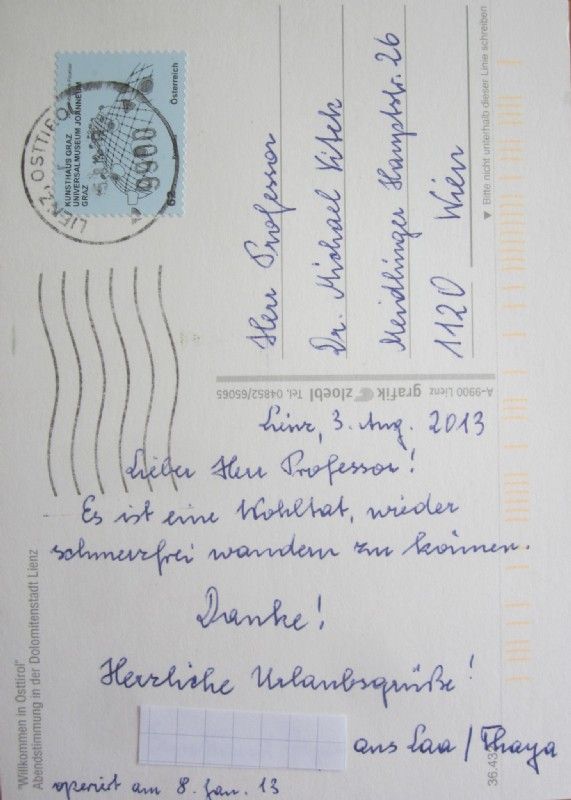 KUNSTHAUS GRAZ
UNIVERSALMUSEUM JOANNEUM
GRAZ
Österreich
62
9900
LIENZ, OSTTIROL
Herr Professor
Dr. Michael Vitek
Meidlinger Hauptstr. 26
1120 Wien
▼ Bitte nicht unterhalb dieser Linie schreiben
A-9900 Lienz grafik zloebl Tel. 04852/65065
Lienz, 3. Aug. 2013
Lieber Herr Professor!
Es ist eine Wohltat, wieder
schmerzfrei wandern zu können.
Danke!
Herzliche Urlaubsgrüße!
aus Laa / Thaya
operiert am 8. Jan. 13
"Willkommen in Osttirol"
Abendstimmung in der Dolomitenstadt Lienz